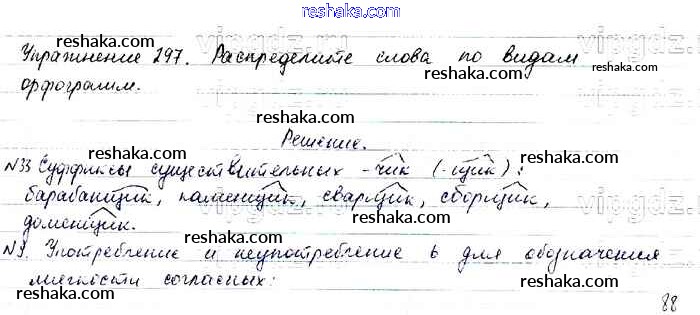 reshaka.com
reshaka.com
reshaka.com
Упражнение 297. Распределите слова по видам
reshaka.com
орфограмм.
reshaka.com
Решение.
№33 Суффиксы существительных -чик (-щик):
reshaka.com
барабанщик, каменщик, сварщик, сборщик,
reshaka.com
reshaka.com
доменщик.
reshaka.com
№9. Употребление и неупотребление ь для обозначения
reshaka.com
мягкости согласных:
reshaka.com
88